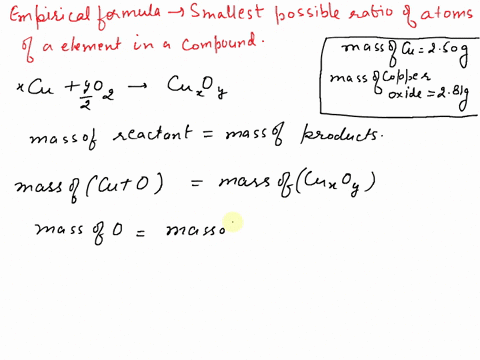 Empirical formula → Smallest possible ratio of atoms
of a element in a compound.
mass of Cu = 2.50g
mass of Copper
oxide = 2.81g
xCu + y/2 O2 → CuxOy
mass of reactant = mass of products.
mass of (Cu + O) = mass of (CuxOy)
mass of O = masso